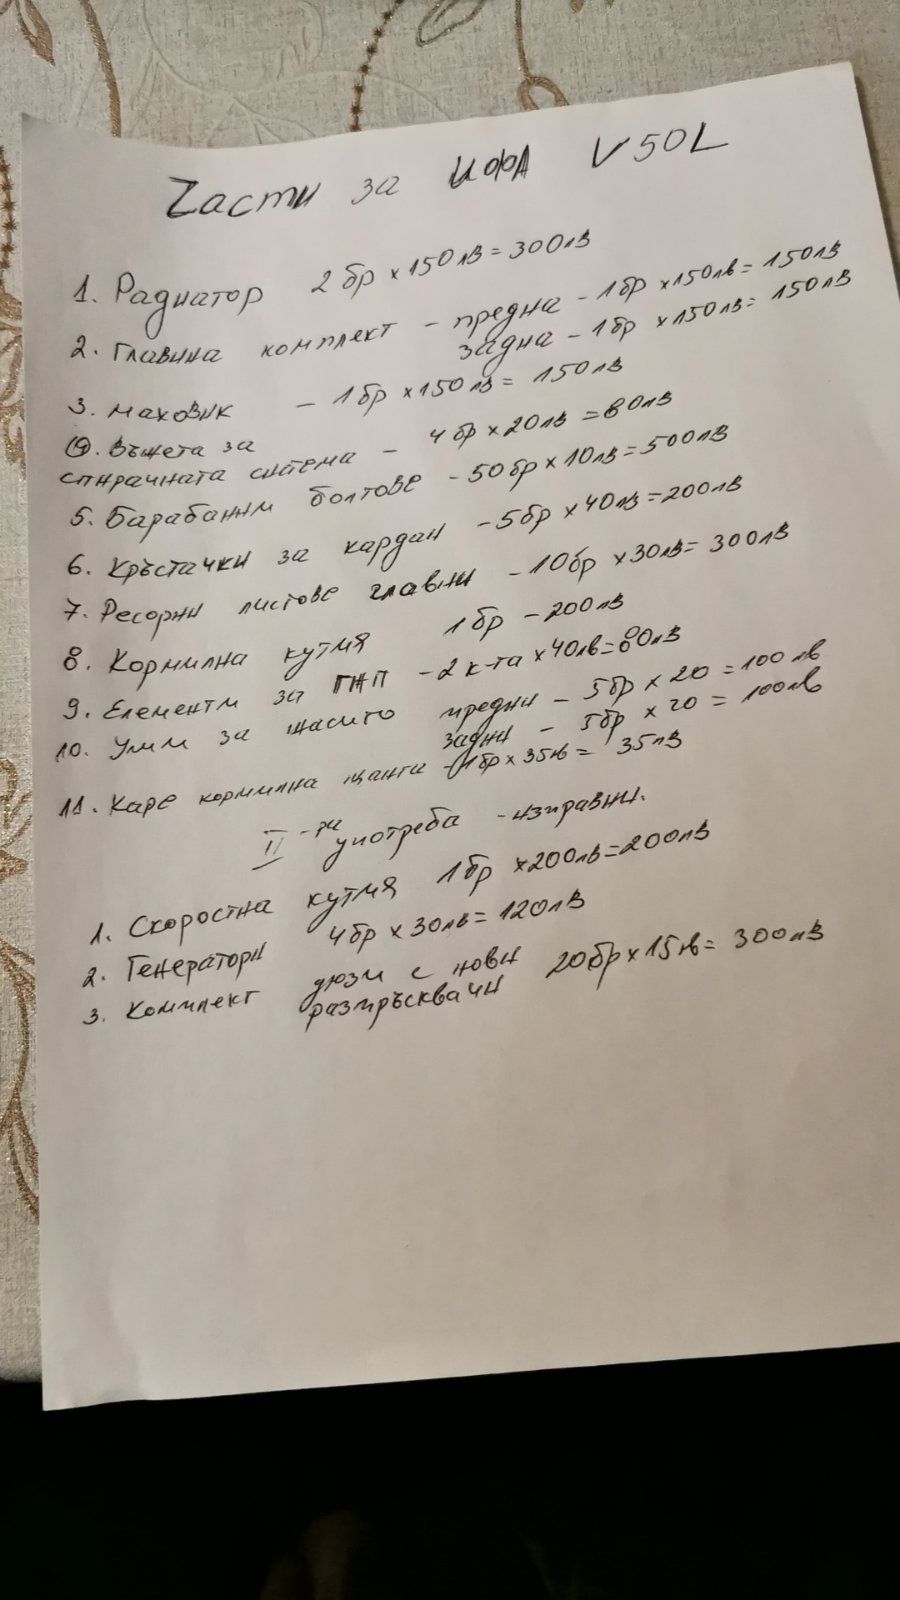 Части за ИФА V50L
1. Радиатор 2бр x150лв=300лв
2. Главина комплект - предна - 1бр x150лв=150лв
задна - 1бр x150лв=150лв
3. маховик - 1бр x150лв=150лв
4. Въжета за
спирачната система - 4бр x20лв=80лв
5. Барабанни болтове - 50бр x10лв=500лв
6. Кръстачки за кардан - 5бр x40лв=200лв
7. Ресорни листове главни - 10бр x30лв=300лв
8. Кормилна кутия 1бр - 200лв
9. Елементи за ГНП - 2к-та x40лв=80лв
10. Уши за шасито предни - 5бр x20=100лв
задни - 5бр x20=100лв
11. Каре кормилна щанга - 1бр x35лв=35лв
II-ра употреба - изправни.
1. Скоростна кутия 1бр x200лв=200лв
2. Генератори 4бр x30лв=120лв
3. Комплект дюзи с нови
разпръсквачи 20бр x15лв=300лв